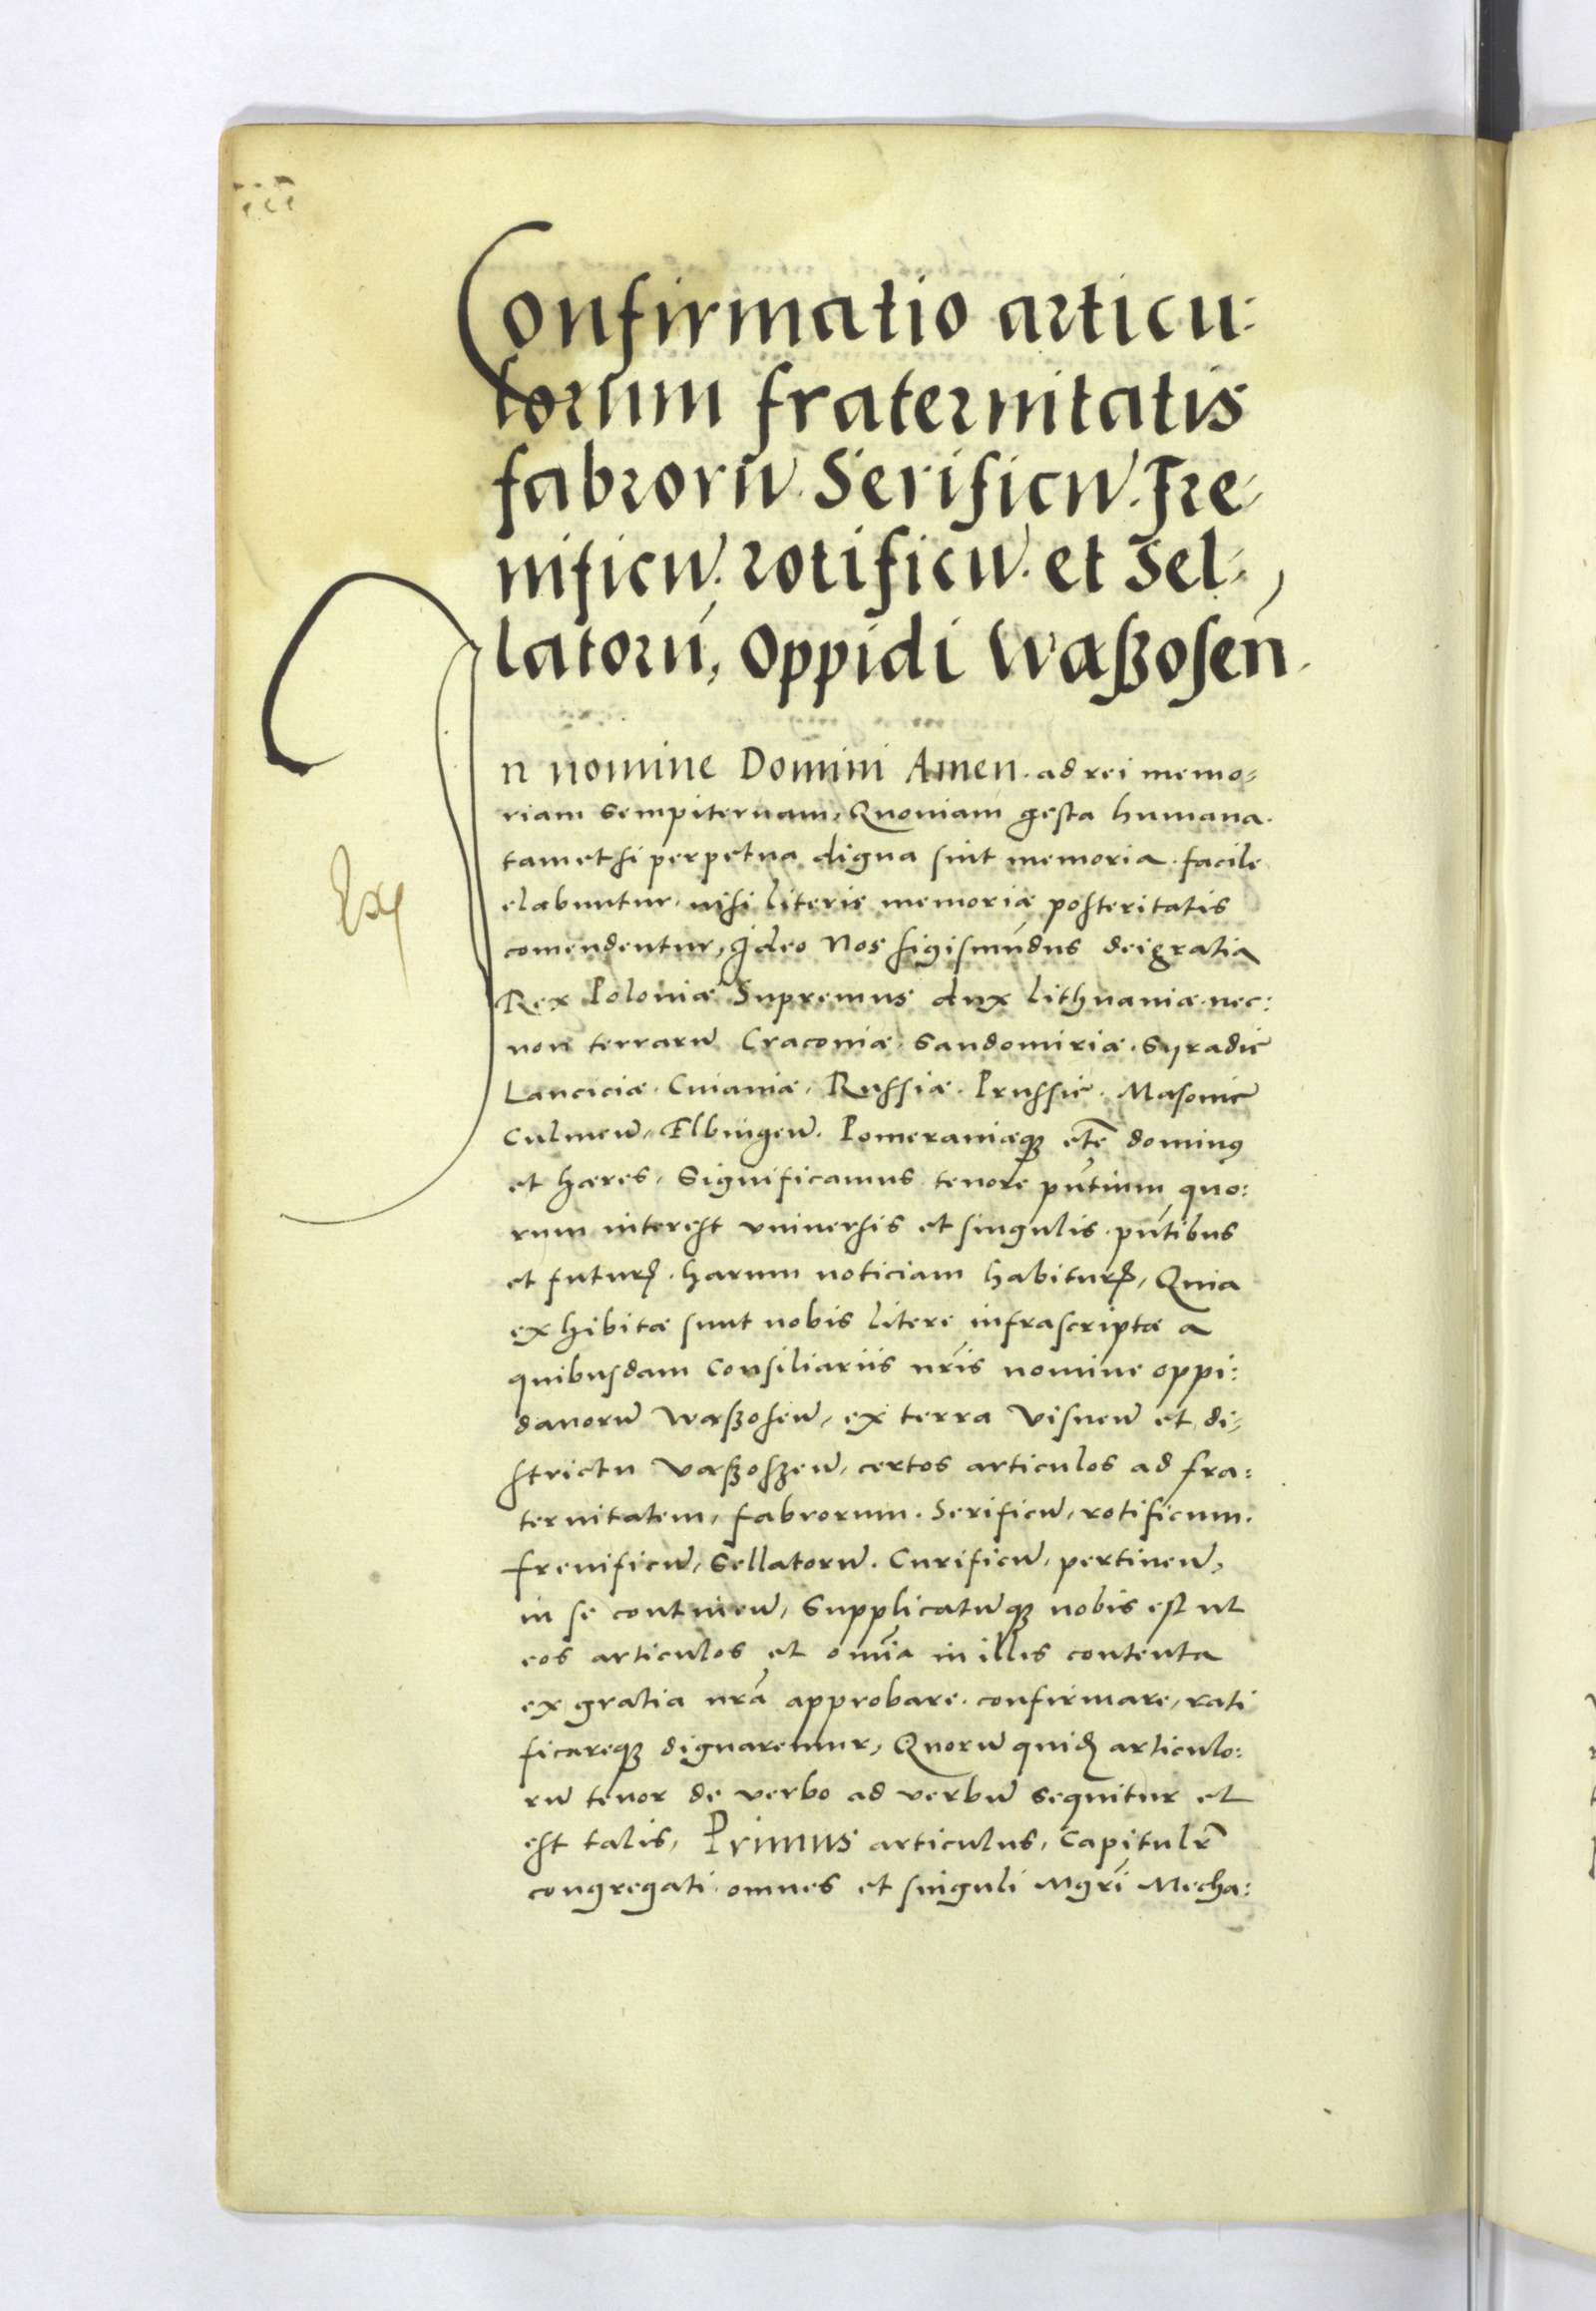 Confirmatio articu:
lorum fraternitatis
fabrorũ. Serificũ. Fre-
nificũ. rotificũ. et Sel-
latorũ, Oppidi Waßosen̄.
In nomine Domini Amen. ad rei memo-
riam sempiternam, Quoniam gesta humana.
tametsi perpetua digna sint memoria. facile
elabuntur, nisi literis memoriæ posteritatis
comendentur, Ideo Nos Sigismundus dei gratia
Rex Poloniæ Supremus dux Lithuaniæ. nec:
non terrarũ Craconiæ. Sandomiriæ. Syradiẽ
Lanciciæ. Cuianiæ. Russiæ. Prussiẽ. Masoniẽ
Culmeñ. Elbingeñ. Pomeraniæqꝫ etc̃ dominꝰ
et hæres. Significamus tenore pñtium quo:
rum interest vniuersis et singulis. pñtibus
et futurꝭ. harum noticiam habiturꝭ, Quia
exhibitæ sunt nobis litere infrascriptæ a
quibusdam Consiliariis nr̃is nomine oppi:
danorũ Waßoseñ, ex terra Visneñ et di-
strictu Vaßoszeñ, certos articulos ad fra:
ternitatem, fabrorum. Serificũ, rotificum.
frenificũ, Sellatorũ. Curificũ, pertineñ,
in se contineñ, Supplicatũqꝫ nobis est ut
eos articulos et om̃ia in illis contenta
ex gratia nr̃a approbare. confirmare, rati
ficareqꝫ dignaremur, Quorũ quidẽ articulo:
rũ tenor de verbo ad verbũ sequitur et
est talis, Primus articulus, Capitulr̃
congregati omnes et singuli Mgr̃i Mecha: